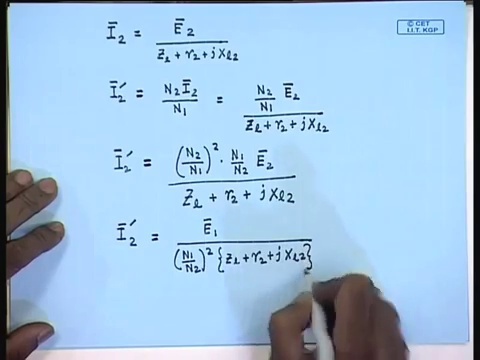 © CET
I.I.T. KGP
Ī₂ = Ē₂ / (Z_ℓ + r₂ + jX_ℓ₂)
Ī₂′ = N₂Ī₂ / N₁ = (N₂/N₁) Ē₂ / (Z_ℓ + r₂ + jX_ℓ₂)
Ī₂′ = (N₂/N₁)² · (N₁/N₂) Ē₂ / (Z_ℓ + r₂ + jX_ℓ₂)
Ī₂′ = Ē₁ / ((N₁/N₂)² {Z_ℓ + r₂ + jX_ℓ₂})